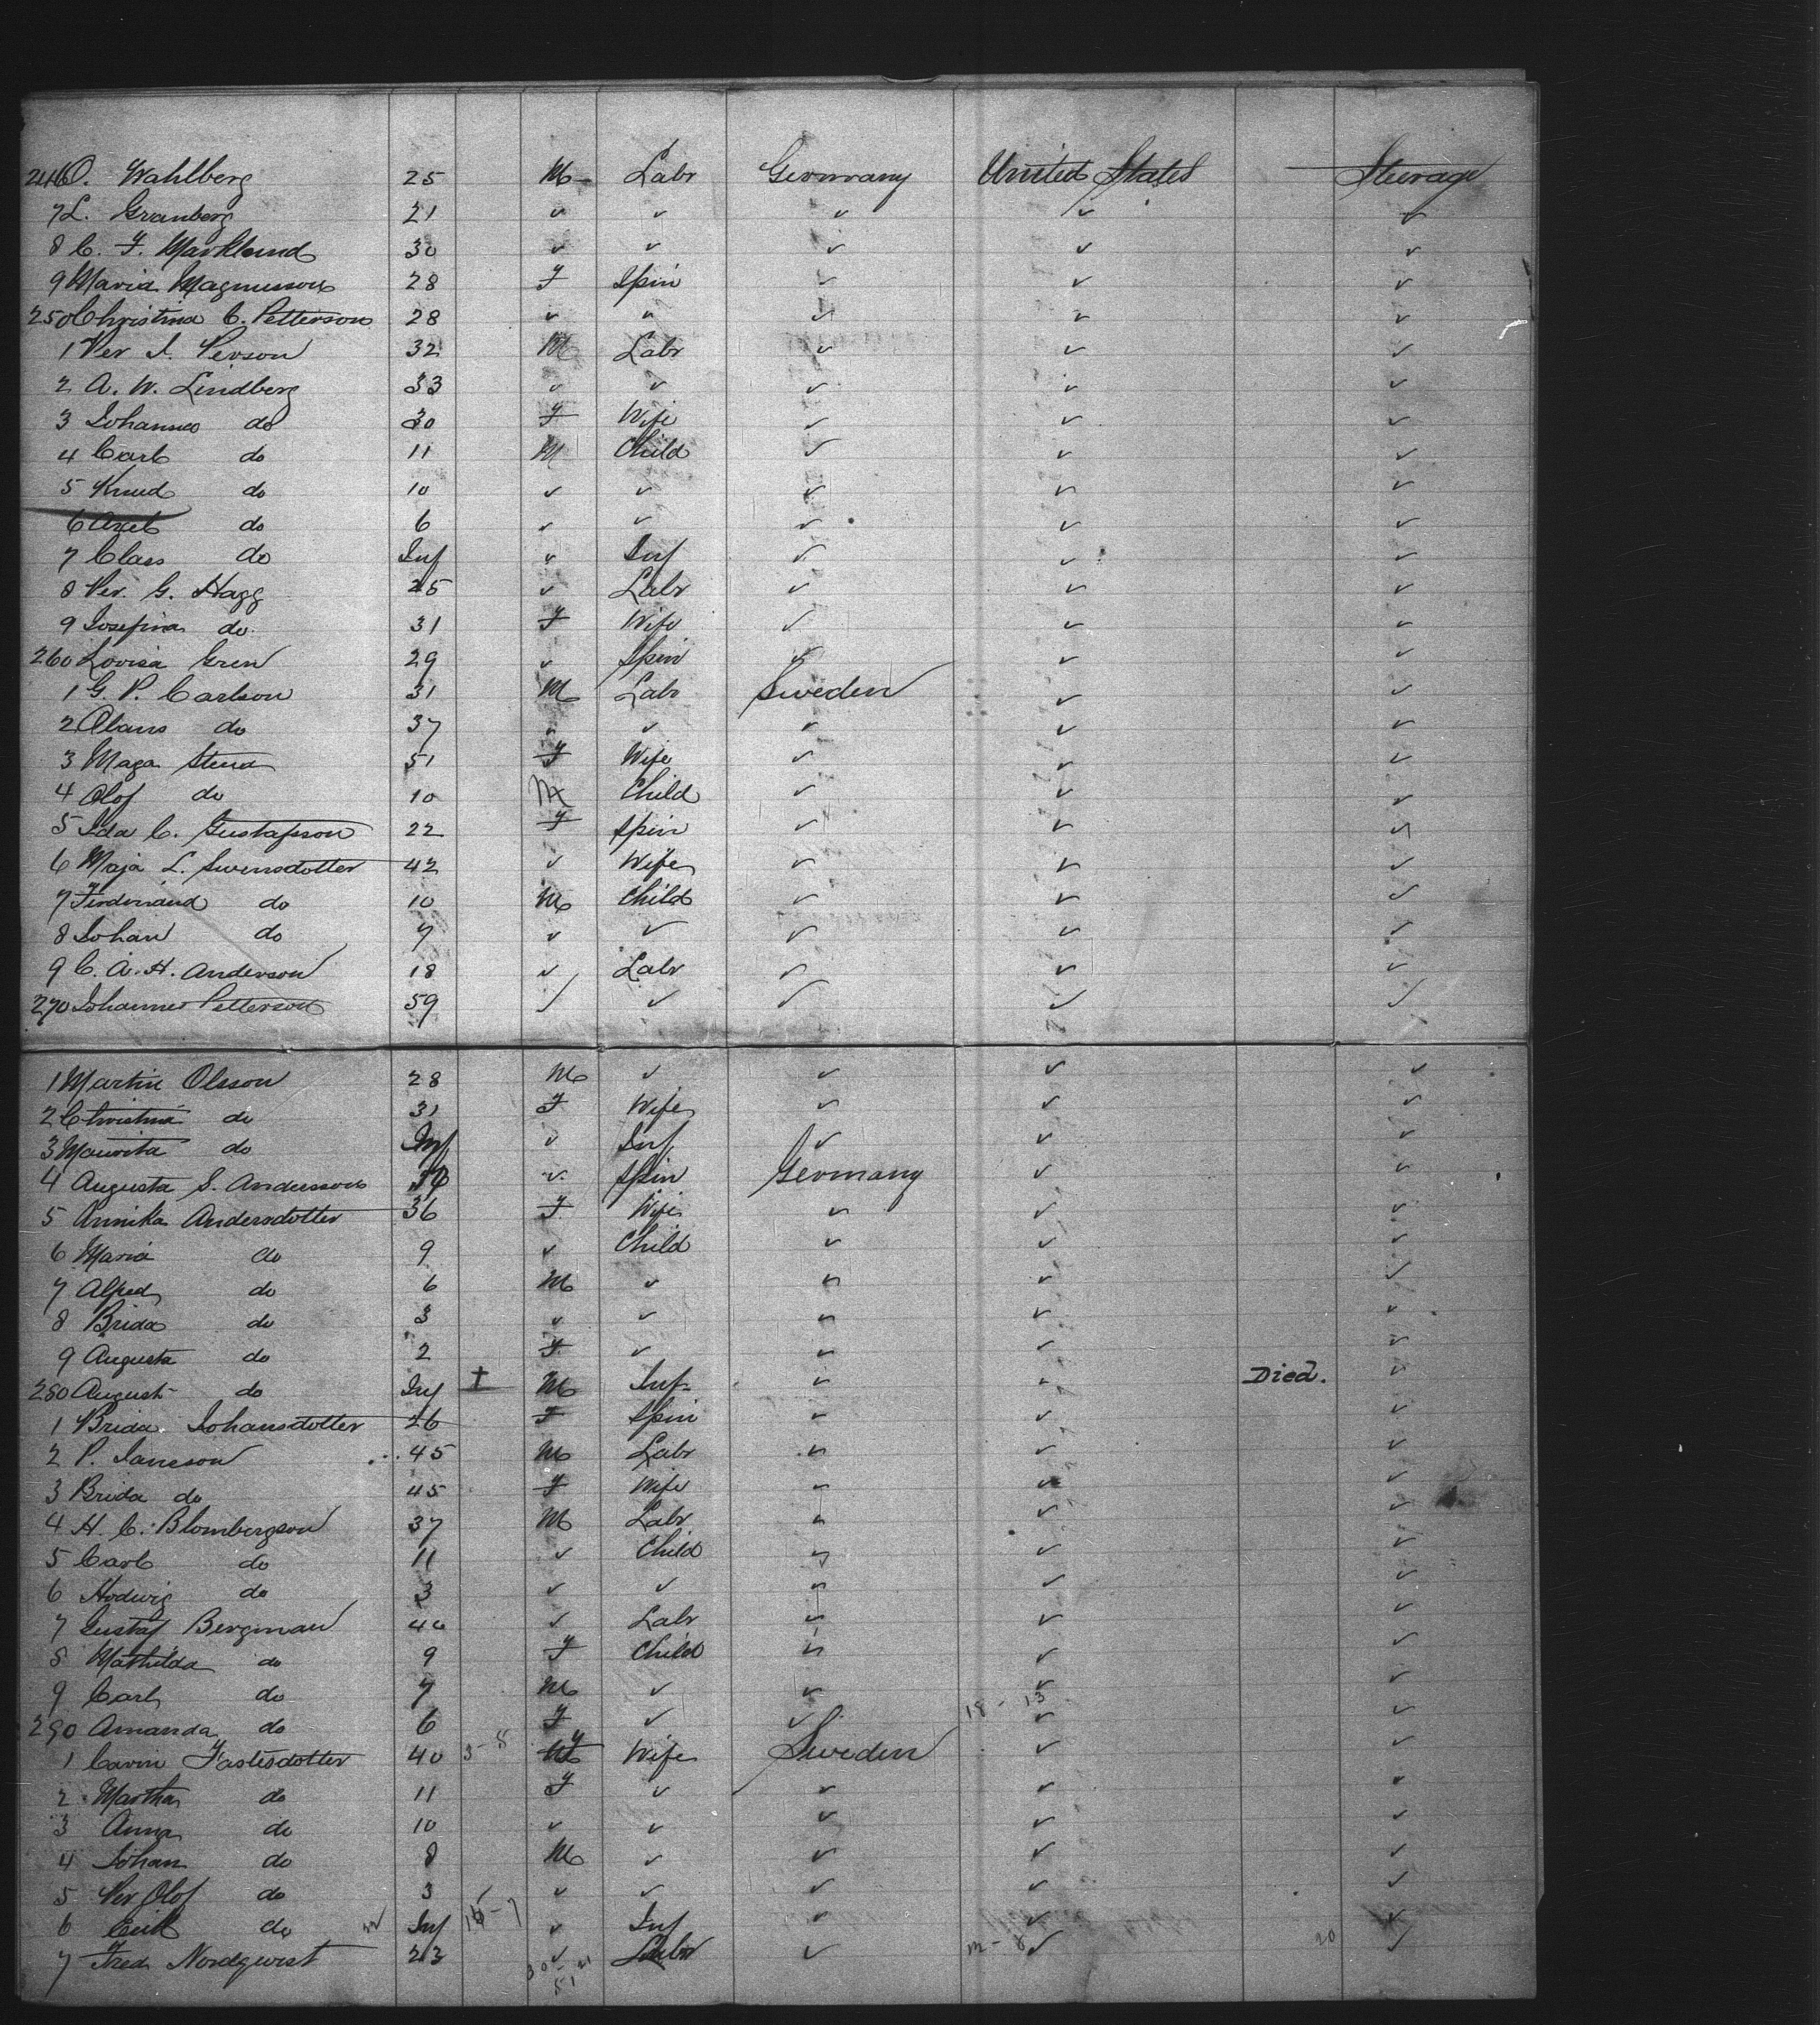 246 O. Wahlberg 25 M Labr Germany United States Steerage
7 L. Granberg 21 " " " " "
8 C. F. Marklund 30 " " " " "
9 Maria Magnusson 28 F Spin " " "
250 Christina C. Petterson 28 " " " " "
1 Per I. Person 32 M Labr " " "
2 A. W. Lindberg 33 " " " " "
3 Johannes do 30 F Wife " " "
4 Carl do 11 M Child " " "
5 Knud do 10 " " " " "
6 Axel do 6 " " " " "
7 Class do Inf " Inf " " "
8 Per. G. Hagg 25 " Labr " " "
9 Josefina do. 31 F Wife " " "
260 Lovisa Gren 29 " Spin " " "
1 G. P. Carlson 31 M Labr Sweden " "
2 Olaus do 37 " " " " "
3 Maga Stena 51 F Wife " " "
4 Olof do 10 M Child " " "
5 Ida C. Gustafsson 22 F Spin " " "
6 Maja L. Swensdotter 42 " Wife " " "
7 Ferdinand do 10 M Child " " "
8 Johan do 7 " " " " "
9 C. A. H. Anderson 18 " Labr " " "
270 Johannes Petterson 59 " " " " "
1 Martin Olsson 28 M " " " "
2 Christina do 31 F Wife " " "
3 Maurita do Inf " Inf " " "
4 Augusta S. Andersson " Spin Germany " "
5 Annika Andersdotter 36 F Wife " " "
6 Maria do 9 " Child " " "
7 Alfred do 6 M " " " "
8 Brida do 3 " " " " "
9 Augusta do 2 F " " " "
280 August do Inf + M Inf " " Died. "
1 Brida Johansdotter 26 F Spin " " "
2 P. Janeson 45 M Labr " " "
3 Brida do 45 F Wife " " "
4 H. C. Blombergson 37 M Labr " " "
5 Carl do 11 " Child " " "
6 Hedwig do 3 " " " " "
7 Gustaf Bergman 40 " Labr " " "
8 Mathilda do 9 F Child " " "
9 Carl do 7 M " " " "
18 - 13
290 Amanda do 6 F " " " "
1 Carin Fastesdotter 40 3-8 F Wife Sweden " "
2 Martha do 11 F " " " "
3 Anna do 10 " " " " "
4 Johan do 8 M " " " "
5 Per Olof do 3 " " " " "
6 Erik do Inf " Inf " " "
7 Fred Nordqwist 23 " Labr " " 20 "